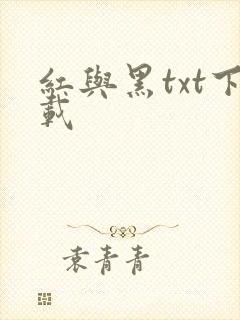 紅與黑txt下
載
袁青青